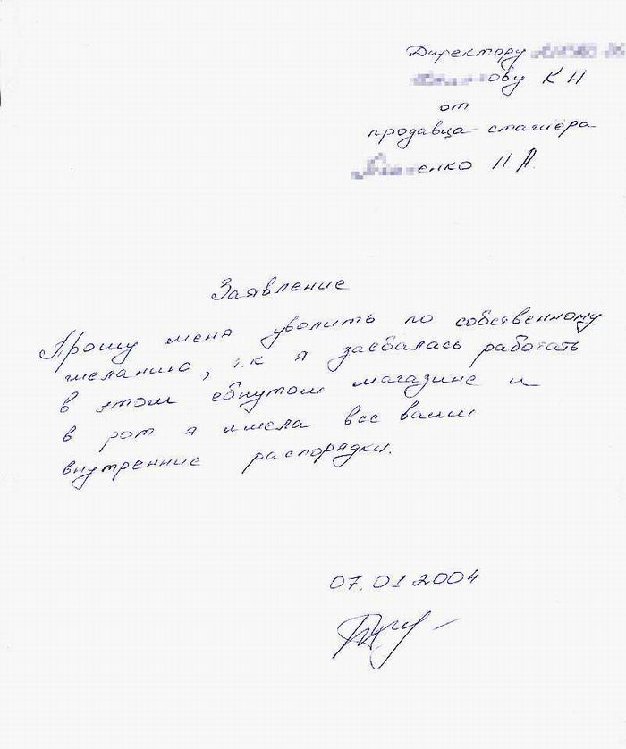 Директору
ову К Н
от
продавца-стажёра
енко Н А.
Заявление
Прошу меня уволить по собственному
желанию, т.к я заебалась работать
в этом ебнутом магазине и
в рот я имела все ваши
внутренние распорядки.
07.01 2004